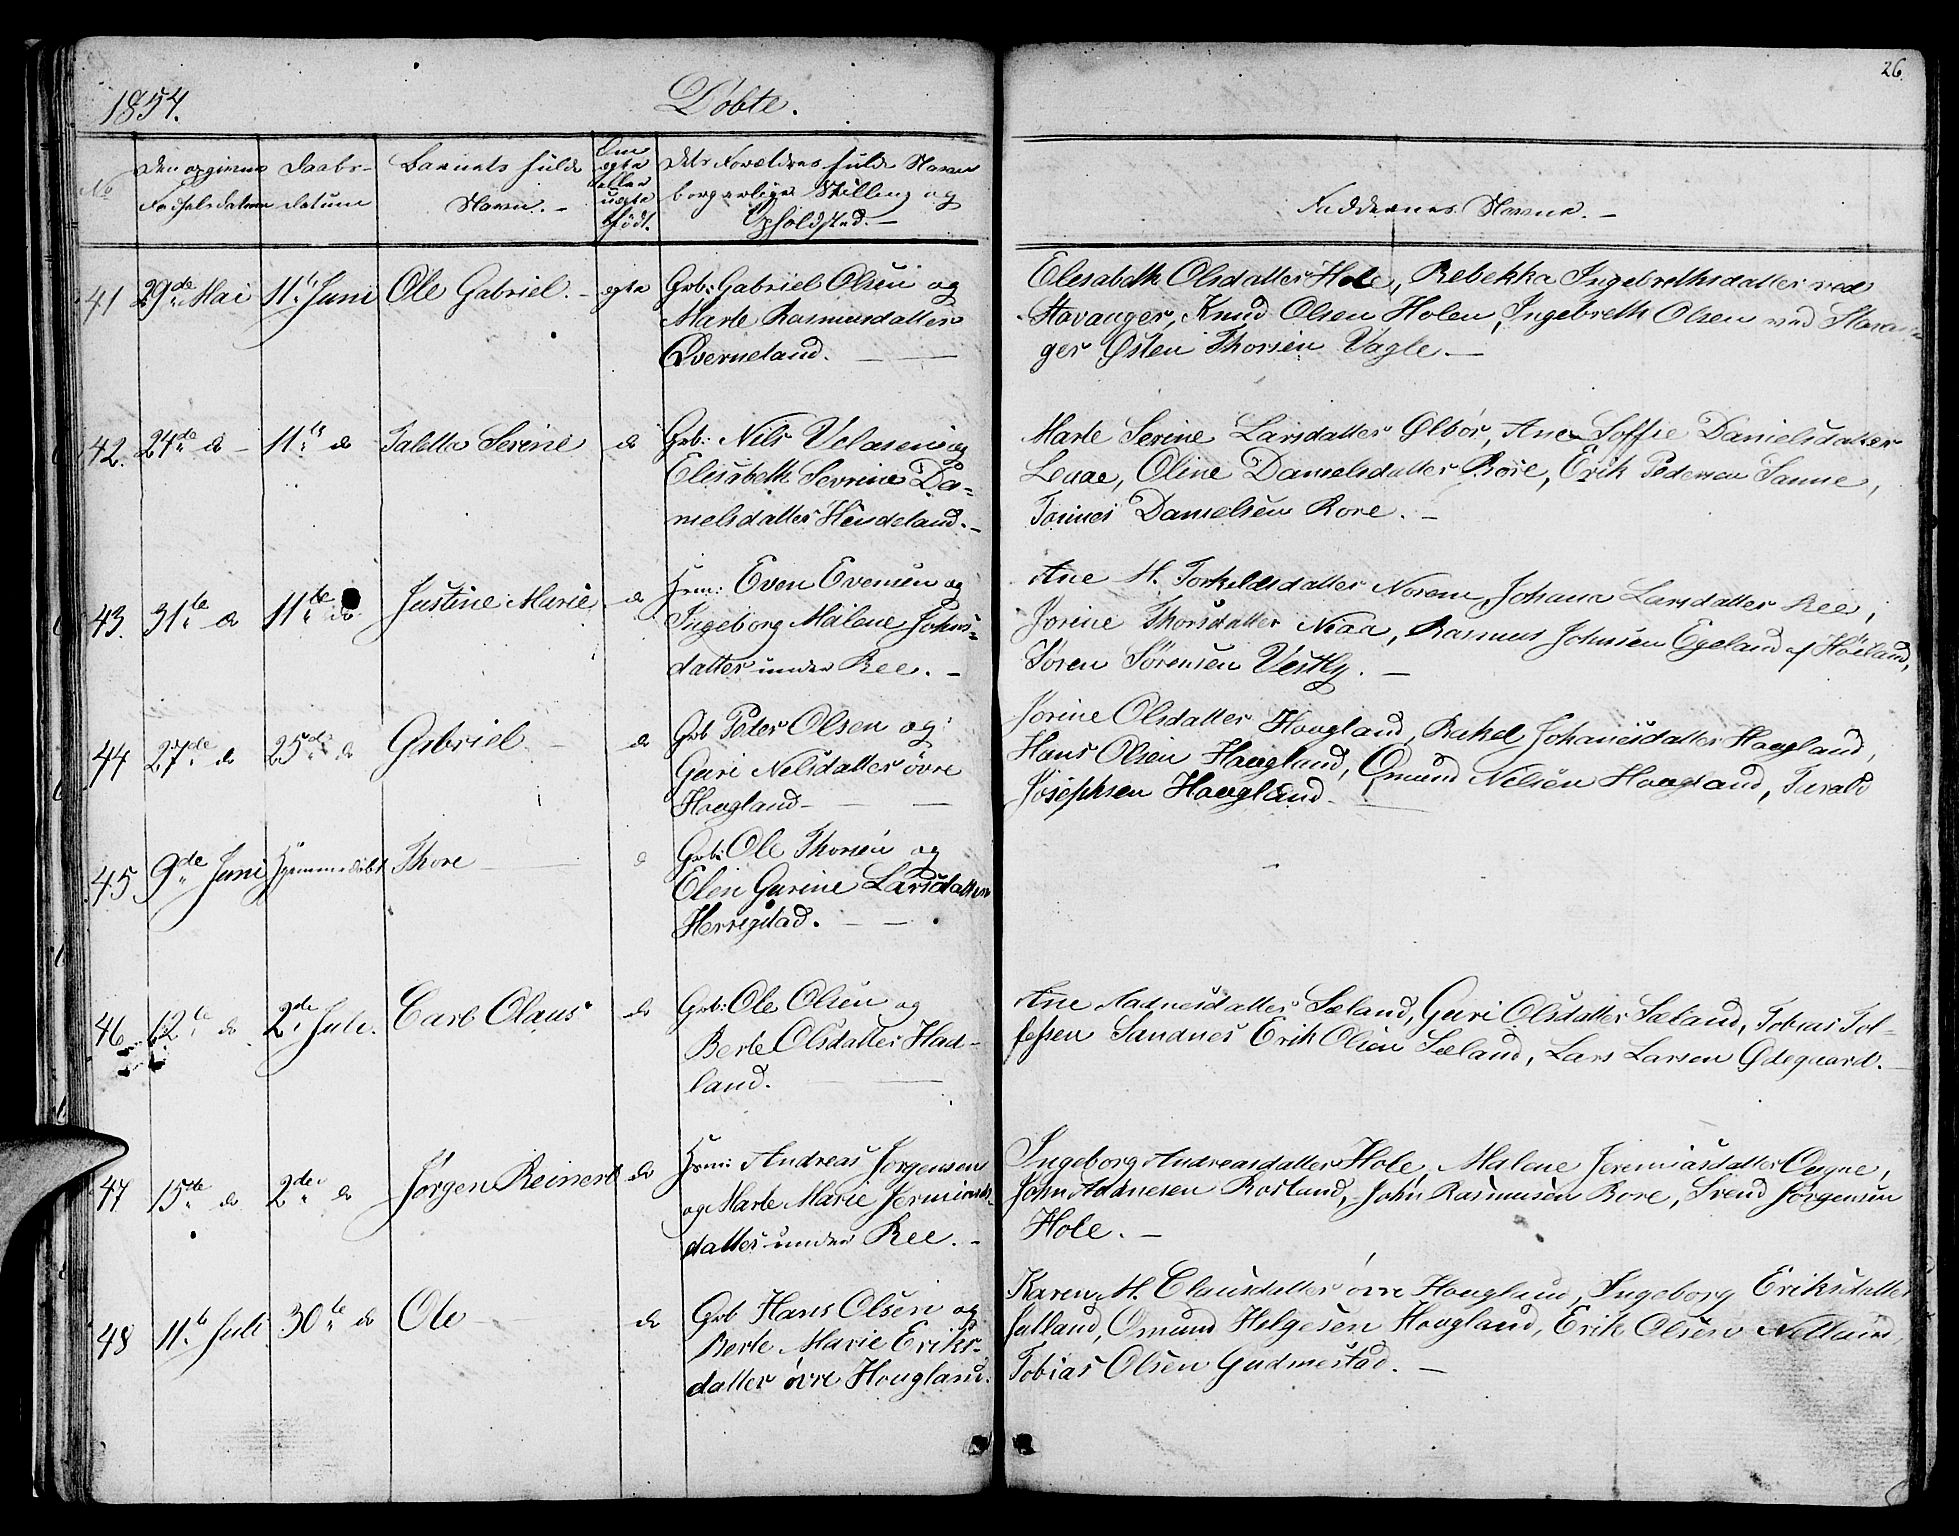 26.
1854. Döbte.
No
Den opgivne
Födselsdatum
Daabs-
datum
Barnets fulde
Navn. -
Om
egte
eller
uegte
födt.
Dets Forældres fulde Navne
borgerlige Stilling og
Opholdsted. -
Faddernes Navne. -
41 29de Mai 11te Juni Ole Gabriel. - egte Grb: Gabriel Olsen og
Marte Rasmusdatter
Qverneland. -
Elesabeth Olsdatter Hole, Rebekka Ingebrethsdatter ved
Stavanger, Knud Olsen Holen, Ingebreth Olsen ved Stavan-
ger Østen Thorsen Vagle. -
42. 24de do - 11te do Taletta Serine do Grb: Nils Velasen og
Elisabeth Sevrine Da-
nielsdatter Hendeland. -
Marte Serine Larsdatter Ølbör, Ane Soffie Danielsdatter
Lenae, Oline Danielsdatter Röre, Erik Pedersen Sanne,
Tonnes Danielsen Rore. -
43. 31te do 11te do Justine Marie do Hsm: Even Evensen og
Ingeborg Malene Johns-
datter under Ree. -
Ane M. Torkildsdatter Norem, Johana Larsdatter Ree,
Jorine Thorsdatter Niaa, Rasmus Johnsen Egeland af Höiland,
Sören Sörensen Vestly. -
44 27de do 25de do Gabriel - do Grb Peter Olsen og
Guri Nelsdatter övre
Haagland -
Jorine Olsdatter Haagland, Rakel Johanesdatter Haagland,
Hans Olsen Haagland, Omund Nelsen Haagland, Turald
Josephsen Haagland -
45. 9de Juni Hjemmedöbt Thore - do Grb: Ole Thorsen og
Elen Gurine Larsdatter
Herrigstad. -
46 12te do 2de Juli. Carl Olaus do Grb: Ole Olsen og
Berte Olsdatter Had-
land.
Ane Aadnesdatter Sæland, Guri Olsdatter Sæland, Tobias Tol-
lefsen Sandnes Erik Olsen Sæland, Lars Larsen Ødegaard. -
47 15te do 2de do Jørgen Reinert do Hsm: Andreas Jorgensen
og Marte Marie Jermias-
datter under Ree. -
Ingeborg Andreasdatter Hole, Malene Jeremiasdatter Oygne,
John Aadnesen Rosland, John Rasmusen Rore, Svend Jörgensen
Hole. -
48 11te Juli 30te do Ole - do Grb Hans Olsen og
Berte Marie Eriks-
datter övre Hougland.
Karen M. Clausdatter övre Haagland, Ingeborg Eriksdatter
Julland, Omund Helgesen Haagland, Erik Olsen Netland,
Tobias Olsen Gudmestad. -